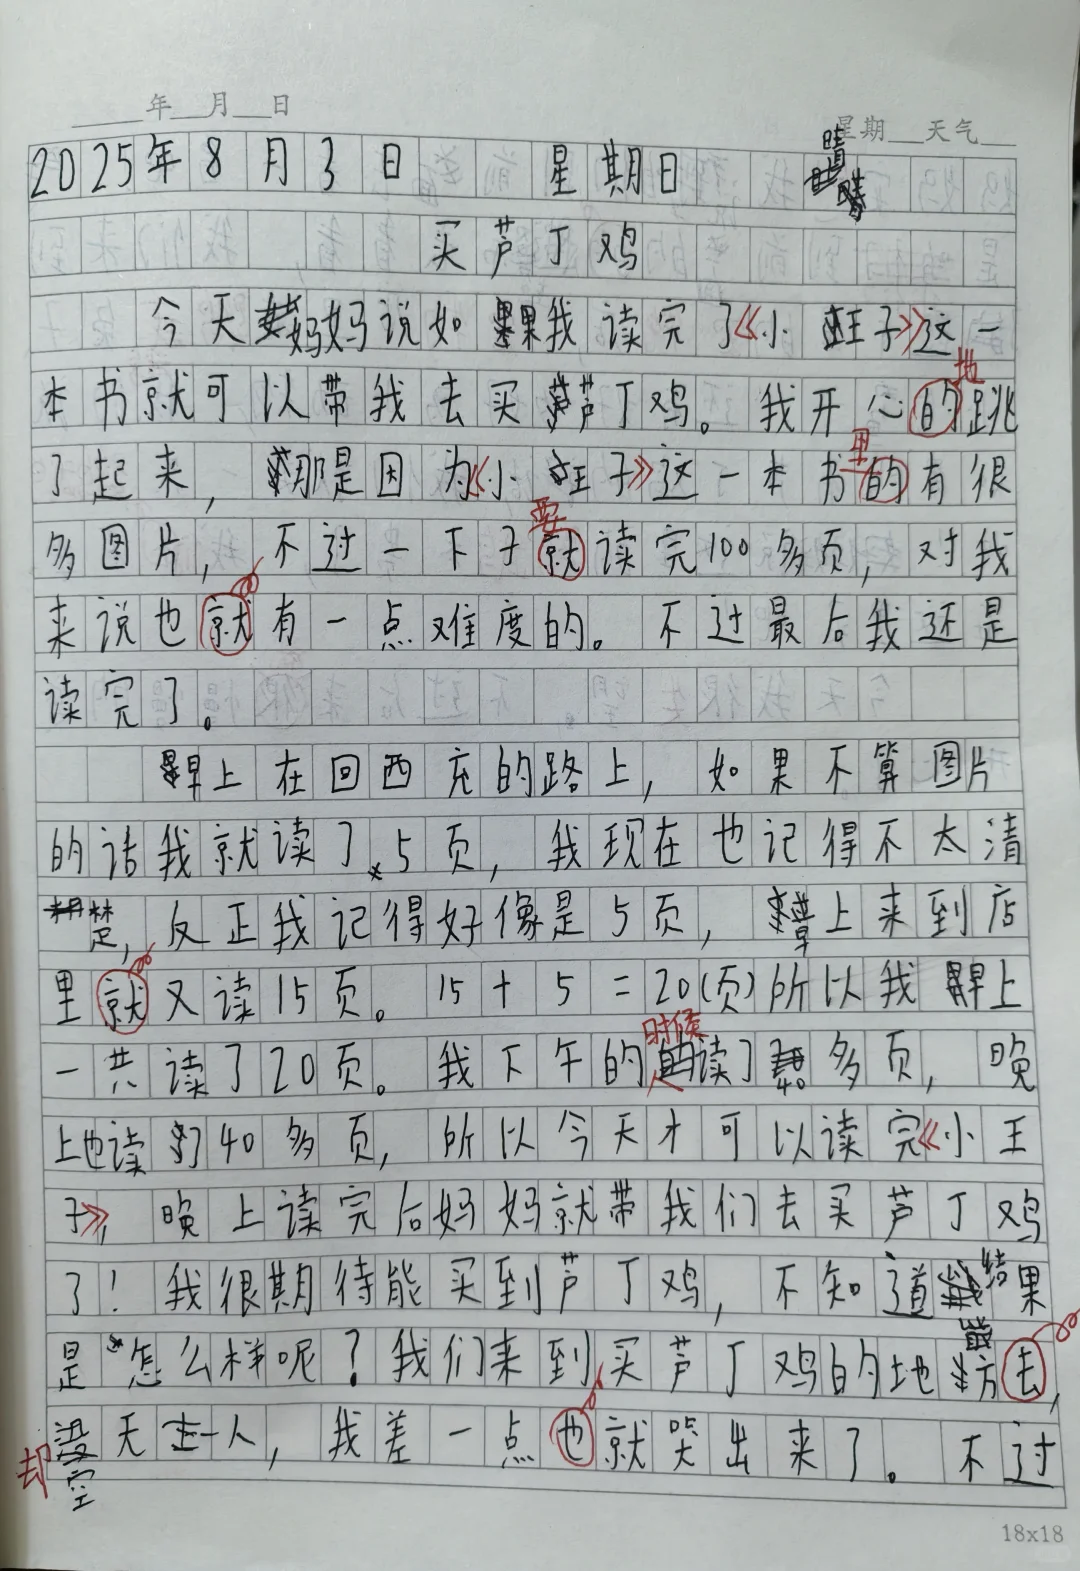 年 月 日
星期 天气
2025年8月3日 星期日 晴
买芦丁鸡
今天妈妈说如果我读完了《小王子》这一
地
本书就可以带我去买芦丁鸡。我开心的跳
里
了起来，那是因为《小王子》这一本书的有很
要
多图片，不过一下子就读完100多页，对我
来说也就有一点难度的。不过最后我还是
读完了。
早上在回西充的路上，如果不算图片
的话我就读了5页，我现在也记得不太清
楚，反正我记得好像是5页，早上来到店
里就又读15页。15+5=20(页)所以我早上
时候
一共读了20页。我下午的读了40多页，晚
上也读了40多页，所以今天才可以读完《小王
子》，晚上读完后妈妈就带我们去买芦丁鸡
了！我很期待能买到芦丁鸡，不知道结果
是怎么样呢？我们来到买芦丁鸡的地方去，
却空无一人，我差一点也就哭出来了。不过
18x18